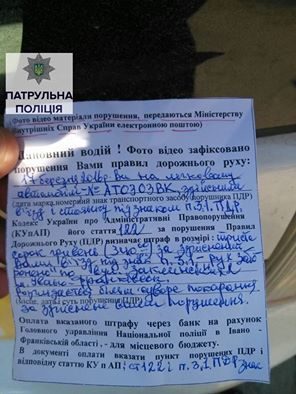 ПАТРУЛЬНА
ПОЛІЦІЯ
(Фото відео матеріали порушення, передаються Міністерству
Внутрішніх Справ України електронною поштою)
Шановний водій ! Фото відео зафіксовано
порушення Вами правил дорожнього руху:
Ви на легковому
автомобілі АТ0303ВК здійснили
в'їзд і стоянку під знаком п.3.1 ПДР
(дата марка,номерний знак транспортного засобу,порушення ПДР)
Кодексу України про Адміністративні Правопорушення
(КУпАП) його стаття 122 за порушення Правил
Дорожнього Руху (ПДР) визначає штраф в розмірі : триста
сорок гривень за здійснення
Вами в'їзду під знак п. 3.1 - рух заборонено
по
м. Івано-Франківськ
за здійснене Вами порушення.
Оплата вказаного штрафу через банк на рахунок
Головного управління Національної поліції в Івано -
Франківській області , - для місцевого бюджету.
В документі оплати вказати пункт порушених ПДР і
відповідну статтю КУ п АП; ст 122 і п. 3,1 ПДР знак